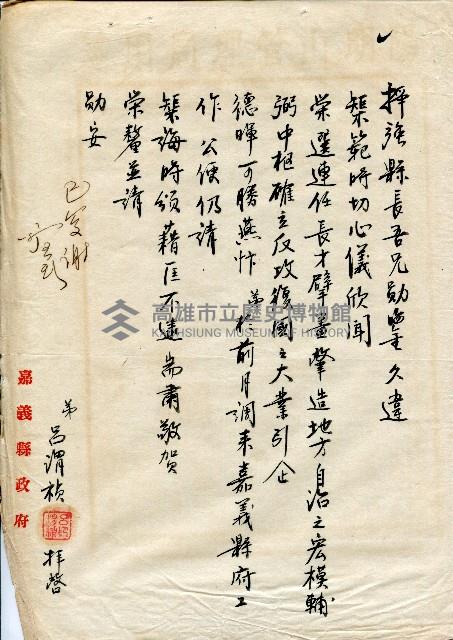 擇強縣長吾兄勛鑒久違
榘範時切心儀欣聞
榮選連任長才擘畫肇造地方自治之宏模輔
弼中樞確立反攻復國之大業引企
德暉可勝燕忭弟於前月調來嘉義縣府工
作公便仍請
榘誨時頒藉匡不逮耑肅敬賀
榮釐並請
勛安
弟呂渭楨拜啓
已復謝
嘉義縣政府
高雄市立歷史博物館
KAOHSIUNG MUSEUM OF HISTORY